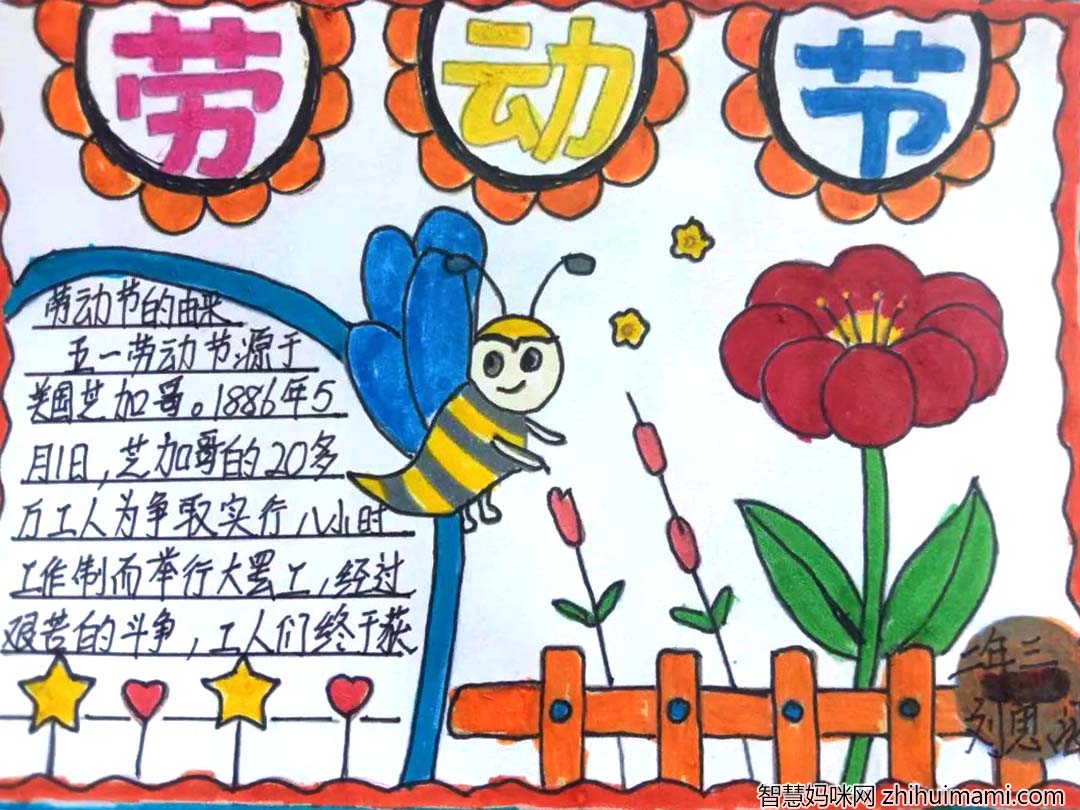 劳动节
劳动节的由来
五一劳动节源于
美国芝加哥。1886年5
月1日,芝加哥的20多
万工人为争取实行八小时
工作制而举行大罢工,经过
艰苦的斗争,工人们终于获
二年三
刘思
智慧妈咪网 zhihuimami.com